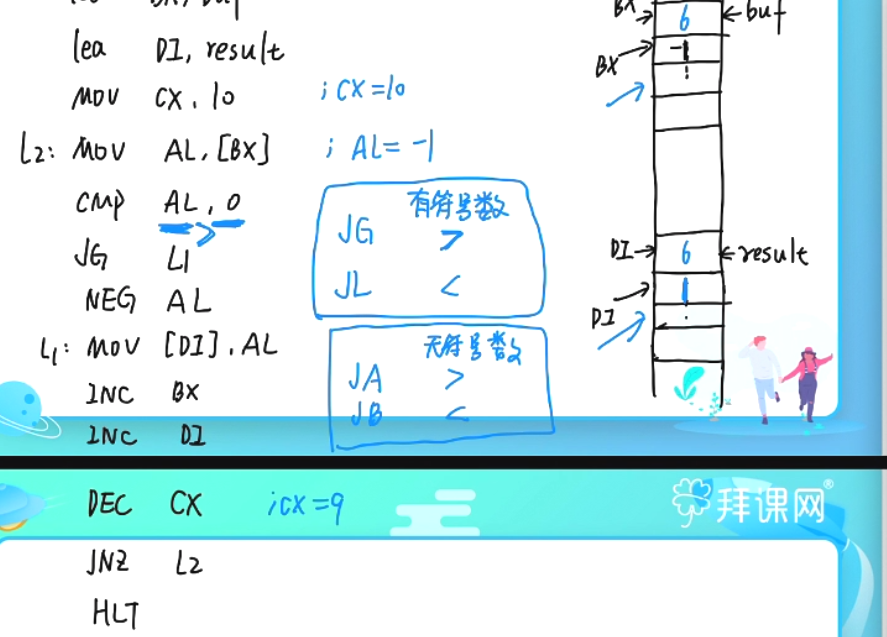 BX, buf
lea DI, result
MOV CX, 10 ; CX=10
L2: MOV AL, [BX] ; AL= -1
CMP AL, 0
>
JG L1
NEG AL
L1: MOV [DI], AL
INC BX
INC DI
有符号数
JG >
JL <
无符号数
JA >
JB <
BX 6 buf
BX -1
DI 6 result
DI 1
DEC CX ; CX=9
拜课网®
JNZ L2
HLT